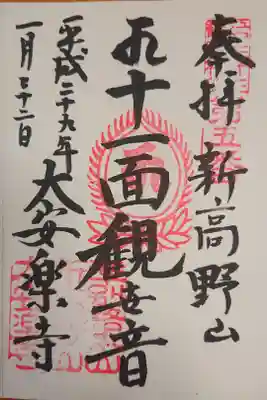 奉拝 新高野山
十一面観世音
大安楽寺
平成二十九年
一月二十二日